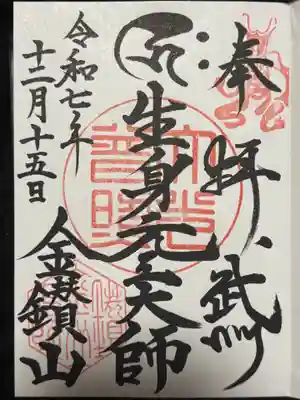 奉拝、武州
生身元三大師
令和七年
十二月十五日
金鑚山